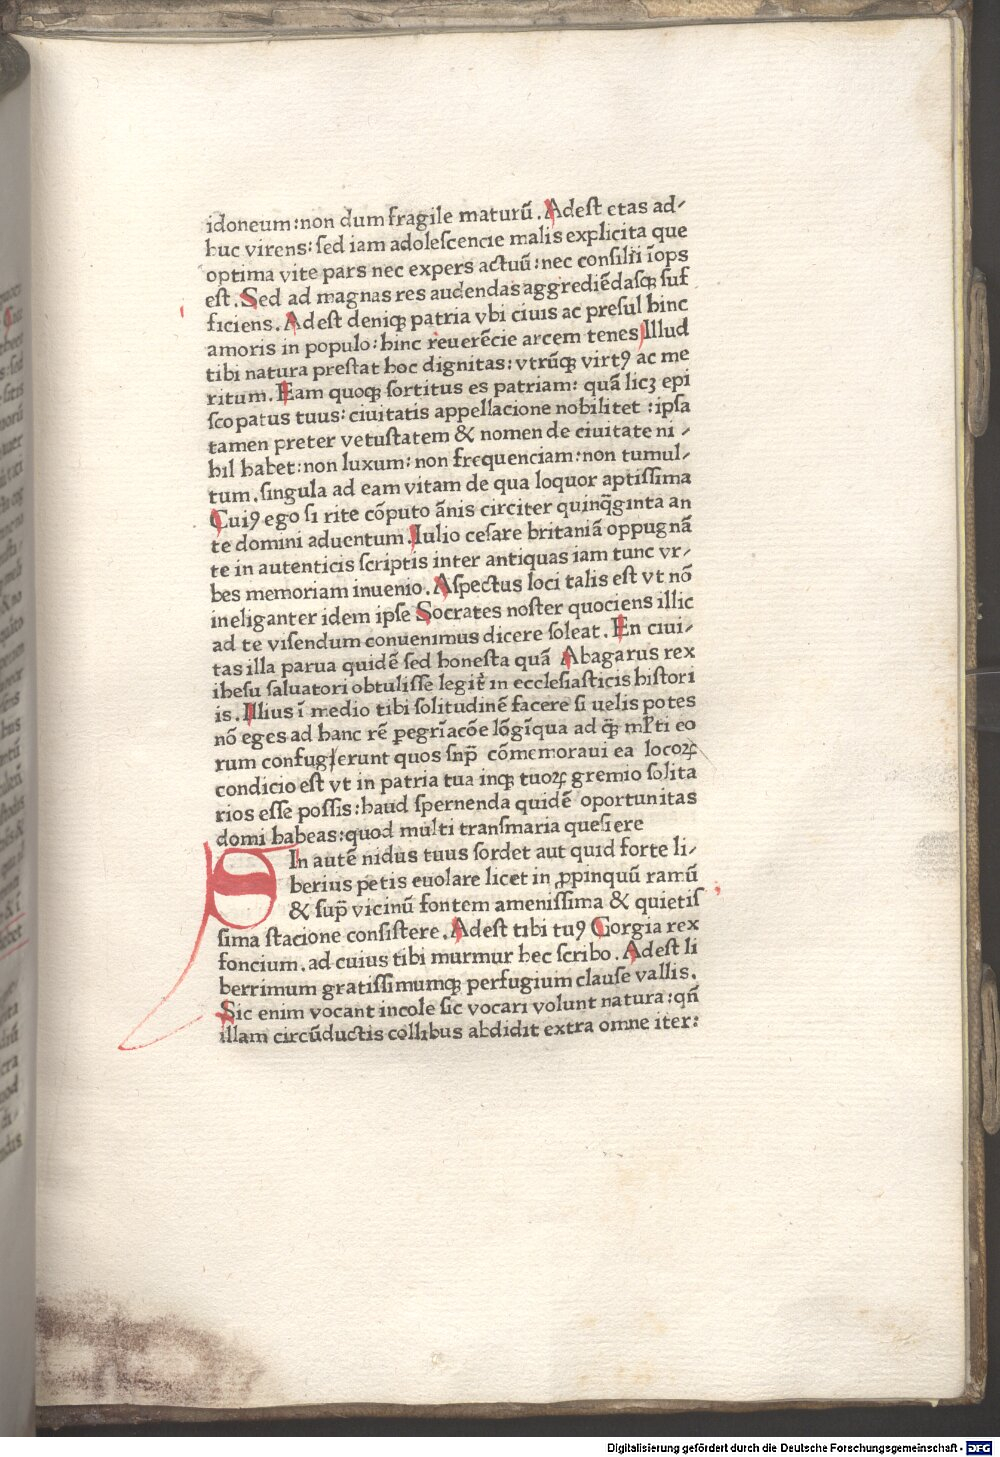 idoneum:non dum fragile maturū. Adest etas ad⸗
huc virens: sed iam adolescencie malis explicita que
optima vite pars nec expers actuū: nec consilii īops
est. Sed ad magnas res audendas aggrediēdasqꝫ suf
ficiens. Adest deniqꝫ patria vbi ciuis ac presul hinc
amoris in populo: hinc reuerēcie arcem tenes Illud
tibi natura prestat hoc dignitas: vtrūqꝫ virtꝰ ac me
ritum. Eam quoqꝫ sortitus es patriam: quā licꝫ epi
scopatus tuus: ciuitatis appellacione nobilitet : ipsa
tamen preter vetustatem & nomen de ciuitate ni ⸗
hil habet: non luxum: non frequenciam: non tumul⸗
tum. singula ad eam vitam de qua loquor aptissima
Cuiꝰ ego si rite cōputo ānis circiter quinq̄ginta an
te domini aduentum. Iulio cesare britaniā oppugnā
te in autenticis scriptis inter antiquas iam tunc vr⸗
bes memoriam inuenio. Aspectus loci talis est vt nō
ineliganter idem ipse Socrates noster quociens illic
ad te visendum conuenimus dicere soleat. En ciui⸗
tas illa parua quidē sed honesta quā Abagarus rex
ihesu saluatori obtulisse legit᷑ in ecclesiasticis histori
is. Illius ī medio tibi solitudinē facere si uelis potes
nō eges ad hanc rē ꝑegrīacōe lōgīqua ad q̄ꝫ ml̓ti eo
rum confugierunt quos sup̄ cōmemoraui ea locoꝝ
condicio est vt in patria tua inqꝫ tuoꝝ gremio solita
rios esse possis: haud spernenda quidē oportunitas
domi habeas: quod multi transmaria quesiere
SIn autē nidus tuus sordet aut quid forte li⸗
berius petis euolare licet in ꝓpinquū ramū
& sup̄ vicinū fontem amenissima & quietis
sima stacione consistere. Adest tibi tuꝰ Gorgia rex
foncium. ad cuius tibi murmur hec scribo. Adest li
berrimum gratissimumqꝫ perfugium clause vallis.
Sic enim vocant incole sic vocari volunt natura: qn̄
illam circūductis collibus abdidit extra omne iter:
Digitalisierung gefördert durch die Deutsche Forschungsgemeinschaft - DFG